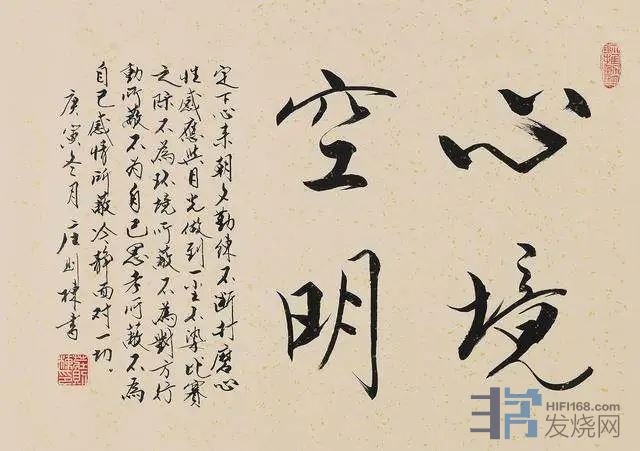 心境
空明
定下心来朝夕勤練不断打磨心
性感應目光做到一尘不染比赛
之际不為环境所蔽不為對方行
動所蔽不为自己思考所蔽不為
自己感情所蔽冷静面对一切。
庚寅冬月 庄则棟書
HIFI168.com
发烧网